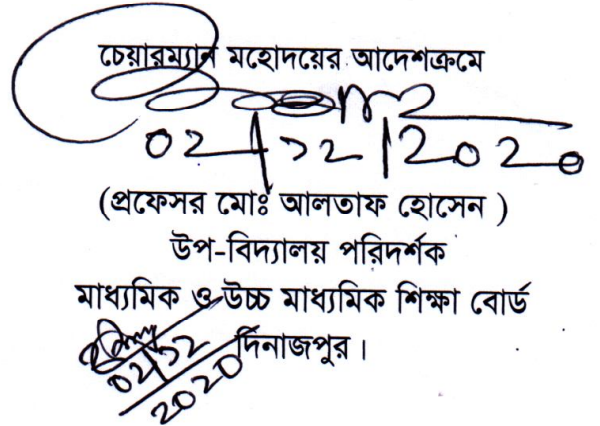 চেয়ারম্যান মহোদয়ের আদেশক্রমে
০২/১২/২০২০
(প্রফেসর মোঃ আলতাফ হোসেন )
উপ-বিদ্যালয় পরিদর্শক
মাধ্যমিক ও উচ্চ মাধ্যমিক শিক্ষা বোর্ড
দিনাজপুর।
০২/১২
২০২০